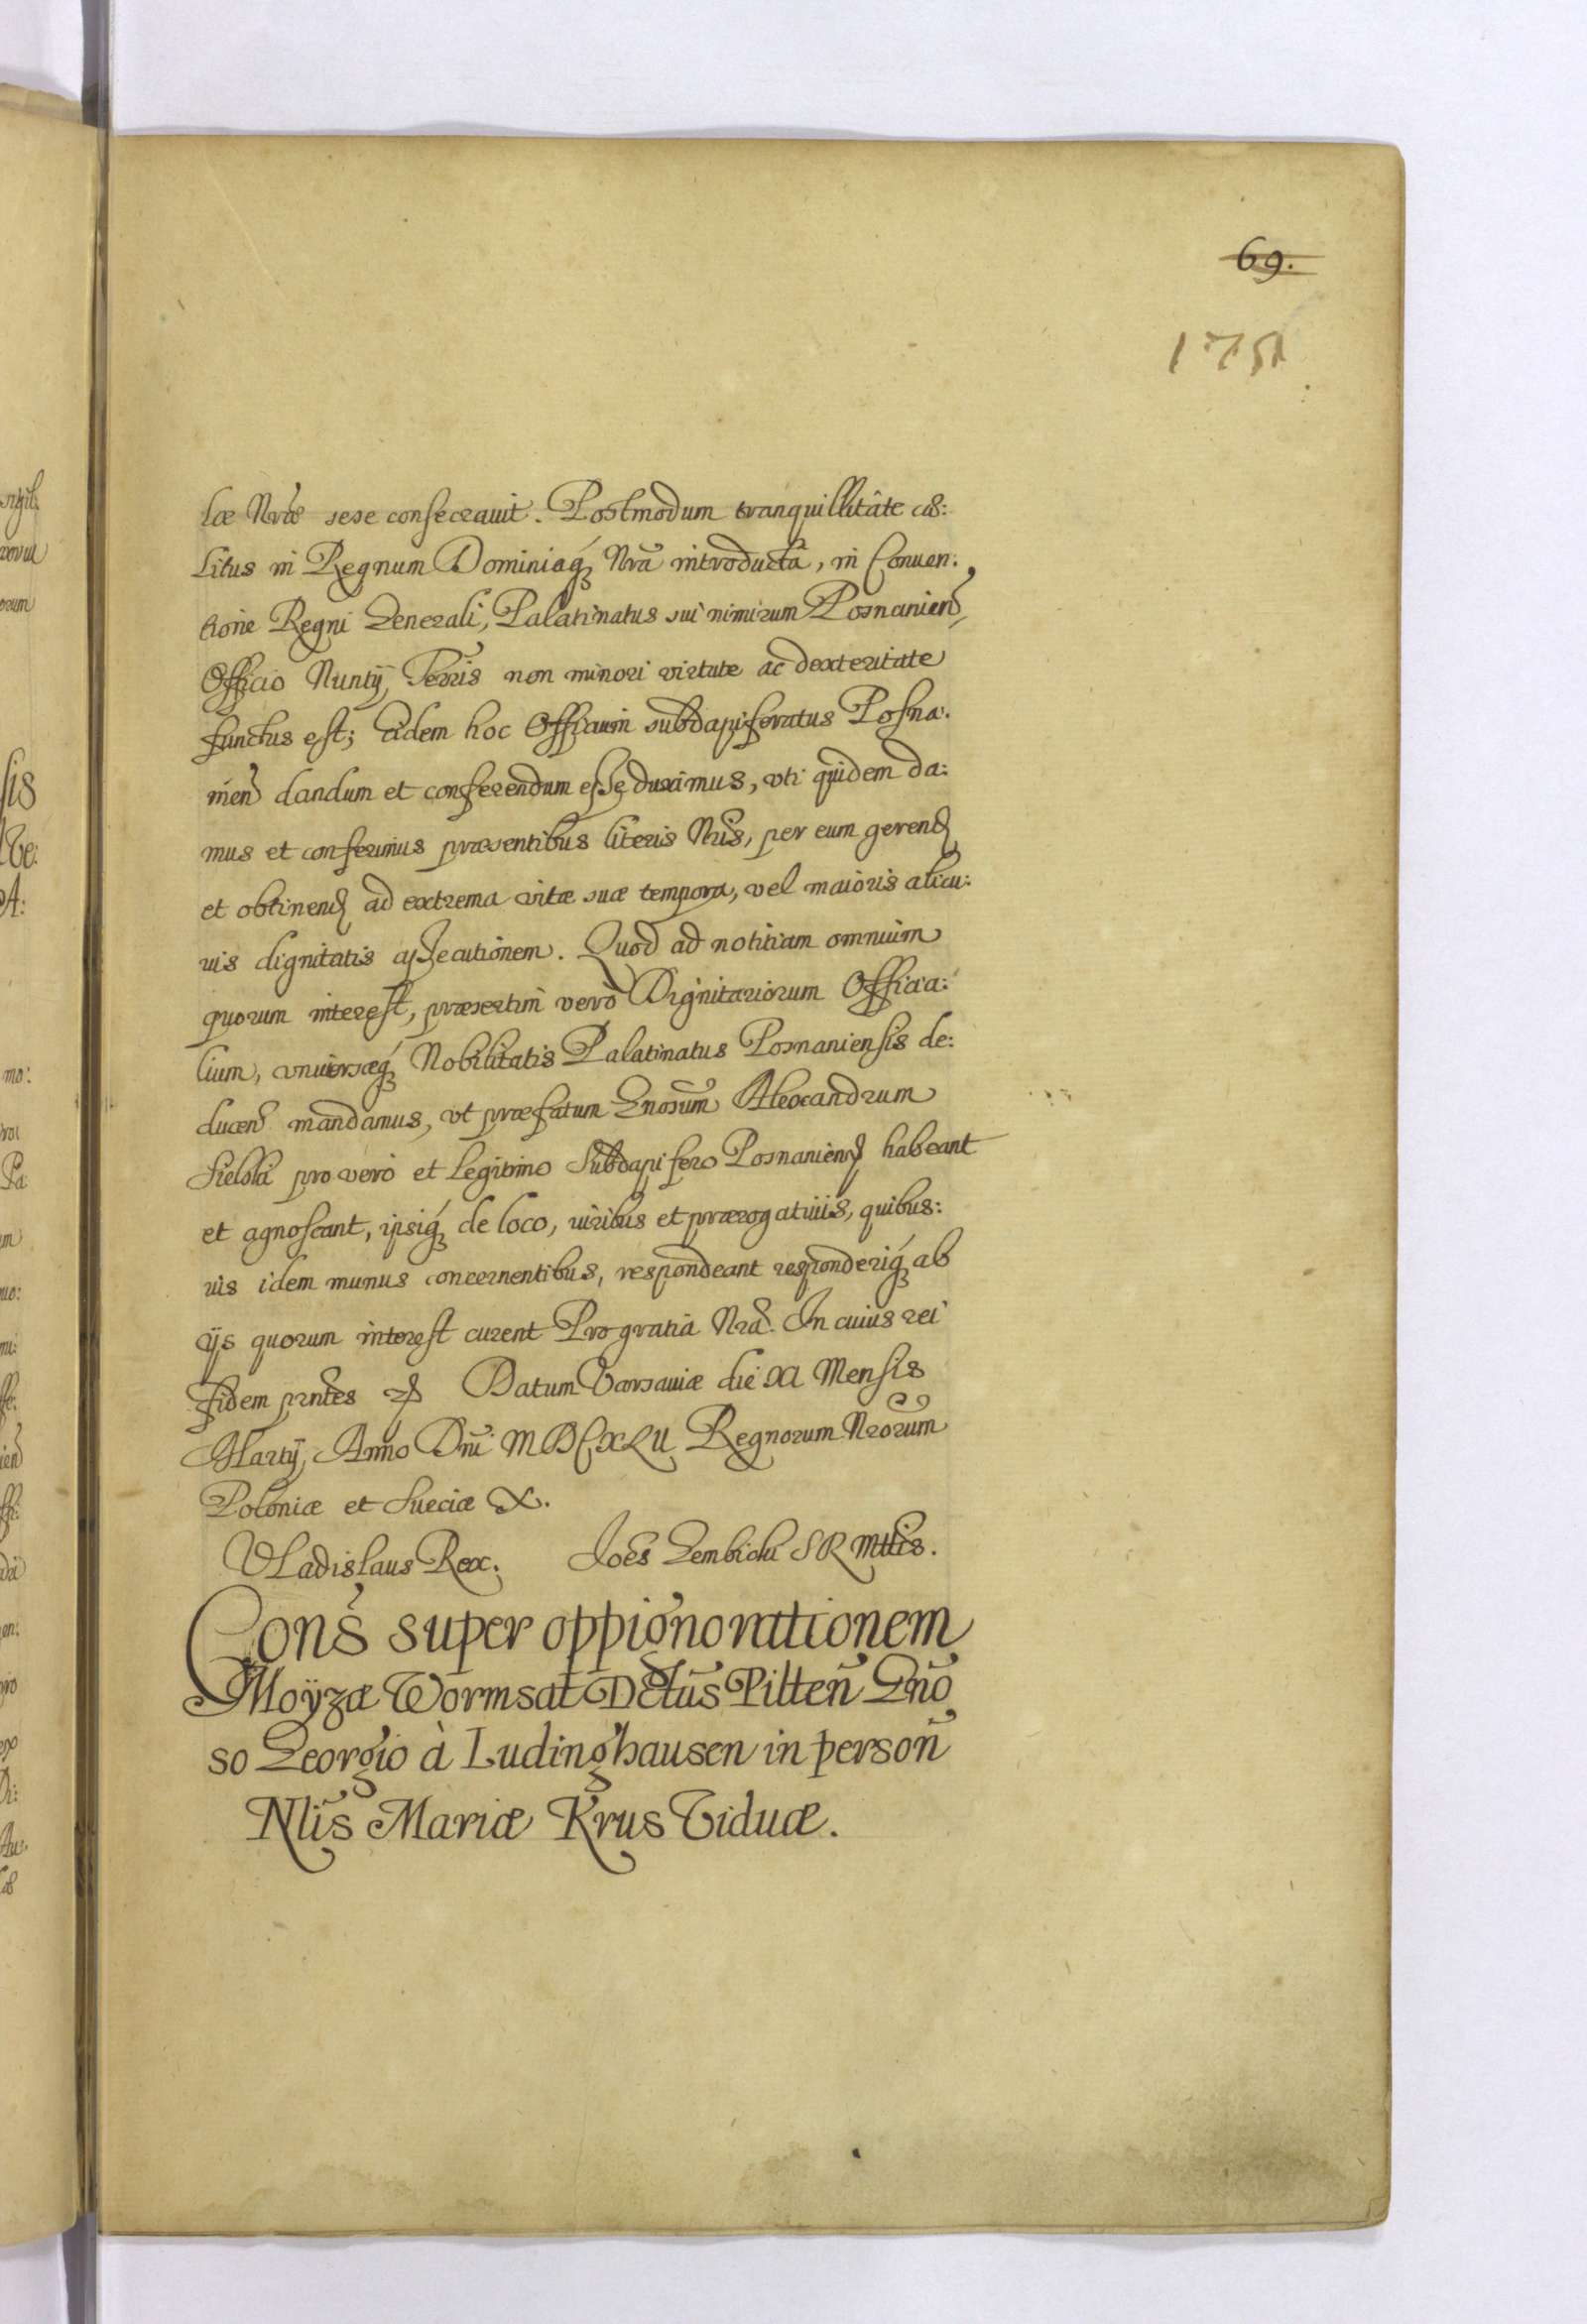 69.
171
læ Nræ sese consecrauit. Postmodum tranquillitâte cæ:
litus in Regnum Dominiaq́ꝫ Nrã introductâ, in Conuen:
tione Regni Generali, Palatinatus sui nimirum Posnanien̄,
Officio Nuntÿ Terris non minori virtute ac dexteritate
functus est; Eidem hoc Officium subdapiferatus Posna:
nien̄ dandum et conferendum esse duximus, vti quidem da:
mus et conferimus præsentibus literis Nris, per eum gerend
et obtinend ad extrema vitæ suæ tempora, vel maioris alicu:
uis dignitatis assecutionem. Quod ad notitiam omnium
quorum interest, præsertim verò Dignitariorum Officia:
lium, vniuersæq́ꝫ Nobilitatis Palatinatus Posnaniensis de:
ducen̄ mandamus, vt præfatum Gnosum̄ Alexandrum
Sielski pro vero et legitimo Subdapifero Posnanien̄ habeant
et agnoscant, ipsiq́ꝫ de loco, iuribus et prærogatiuis, quibus:
uis idem munus concernentibus, respondeant responderiq́ꝫ ab
ijs quorum interest curent Pro gratia Nra. In cuius rei
fidem prntes &. Datum Varsauiæ die XI Mensis
Martÿ, Anno Dni MDCXLII Regnorum Nrorum̄
Poloniæ et Sueciæ &.
Vladislaus Rex. Joes Gembicki SR Mttis.
Cons̄ super oppignorationem
Moÿzæ Wormsat Dctus̄ Pilten̄ Gnõ
so Georgio à Ludinghausen in person̄
Nlis̄ Mariæ Krus Viduæ.